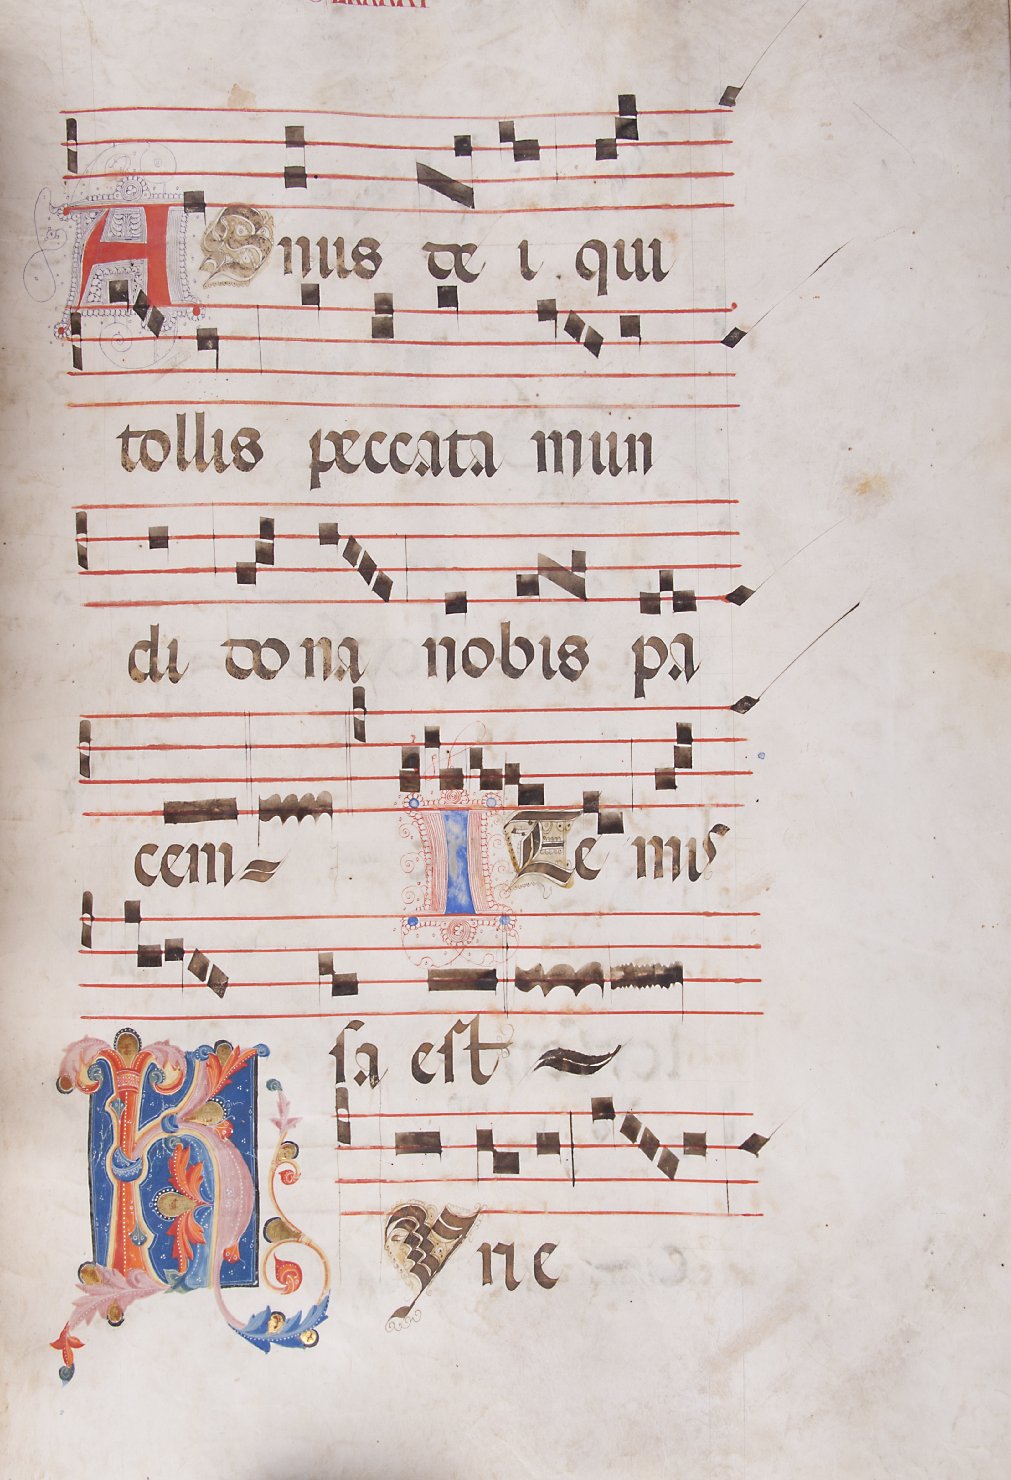 AGnus de i qui
tollis peccata mun
di dona nobis pa
cem ITe mis
sa est
KYrie